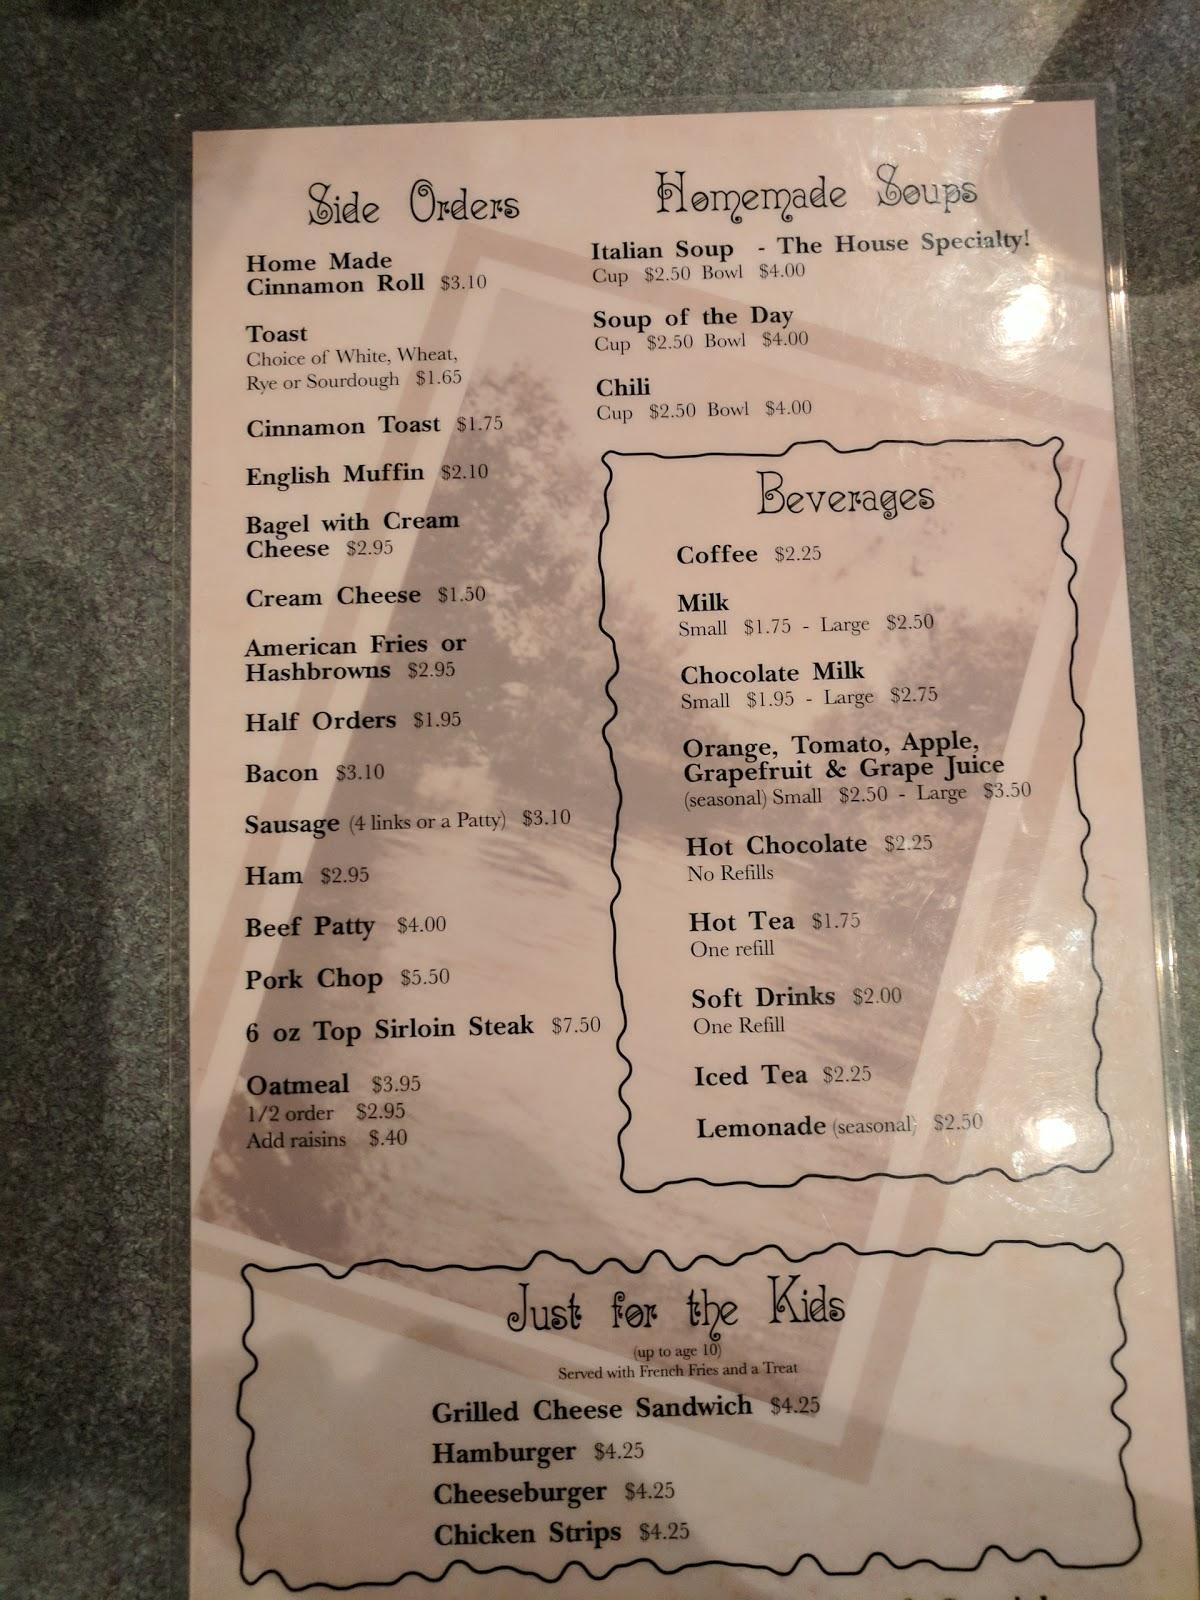 Side Orders
Home Made
Cinnamon Roll $3.10
Toast
Choice of White, Wheat,
Rye or Sourdough $1.65
Cinnamon Toast $1.75
English Muffin $2.10
Bagel with Cream
Cheese $2.95
Cream Cheese $1.50
American Fries or
Hashbrowns $2.95
Half Orders $1.95
Bacon $3.10
Sausage (4 links or a Patty) $3.10
Ham $2.95
Beef Patty $4.00
Pork Chop $5.50
6 oz Top Sirloin Steak $7.50
Oatmeal $3.95
1/2 order $2.95
Add raisins $.40
Homemade Soups
Italian Soup - The House Specialty!
Cup $2.50 Bowl $4.00
Soup of the Day
Cup $2.50 Bowl $4.00
Chili
Cup $2.50 Bowl $4.00
Beverages
Coffee $2.25
Milk
Small $1.75 - Large $2.50
Chocolate Milk
Small $1.95 - Large $2.75
Orange, Tomato, Apple,
Grapefruit & Grape Juice
(seasonal) Small $2.50 - Large $3.50
Hot Chocolate $2.25
No Refills
Hot Tea $1.75
One refill
Soft Drinks $2.00
One Refill
Iced Tea $2.25
Lemonade (seasonal) $2.50
Just for the Kids
(up to age 10)
Served with French Fries and a Treat
Grilled Cheese Sandwich $4.25
Hamburger $4.25
Cheeseburger $4.25
Chicken Strips $4.25